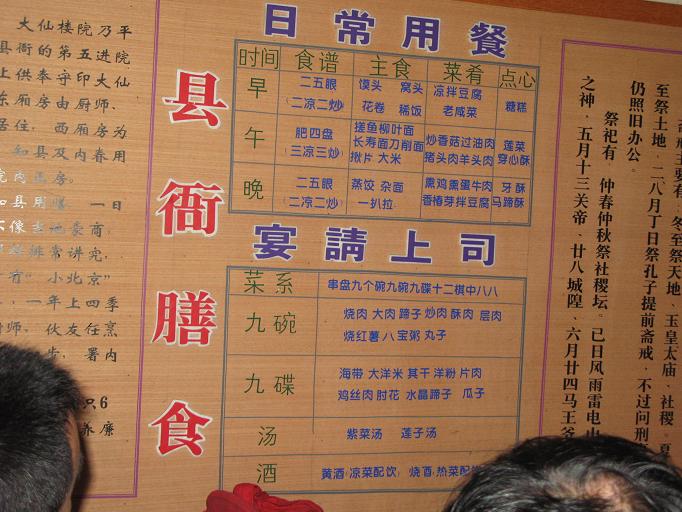 大仙楼院乃平
县衙的第五进院
上供奉守印大仙
东厢房由厨师、
居住，西厢房为
知县及内眷用
小北京"
一年上四季
伙友任烹
署内
县衙膳食
日常用餐
时间 食谱 主食 菜肴 点心
早 二五眼 (二凉二炒) 馍头 窝头 花卷 稀饭 凉拌豆腐 老咸菜 糖糕
午 肥四盘 (三凉三炒) 搓鱼柳叶面 长寿面刀削面 揪片 大米 炒香菇过油肉 猪头肉羊头肉 莲菜 穿心酥
晚 二五眼 (二凉二炒) 蒸饺 杂面 一扒拉 熏鸡熏蛋牛肉 香椿芽拌豆腐 牙酥 马蹄酥
宴請上司
菜系 串盘九个碗九碗九碟十二棋中八八
九碗 烧肉 大肉 蹄子 炒肉 酥肉 层肉
烧红薯 八宝粥 丸子
九碟 海带 大洋米 其干 洋粉 片肉
鸡丝肉 肘花 水晶蹄子 瓜子
汤 紫菜汤 莲子汤
酒 黄酒(凉菜配饮) 烧酒(热菜配
冬至祭天地、玉皇太庙、社稷。夏
至祭土地，二八月丁日祭孔子提前斋戒，不过问刑
仍照旧办公。
祭祀有，仲春仲秋祭社稷坛。己日风雨雷电山
之神，五月十三关帝、廿八城隍、六月廿四马王爷